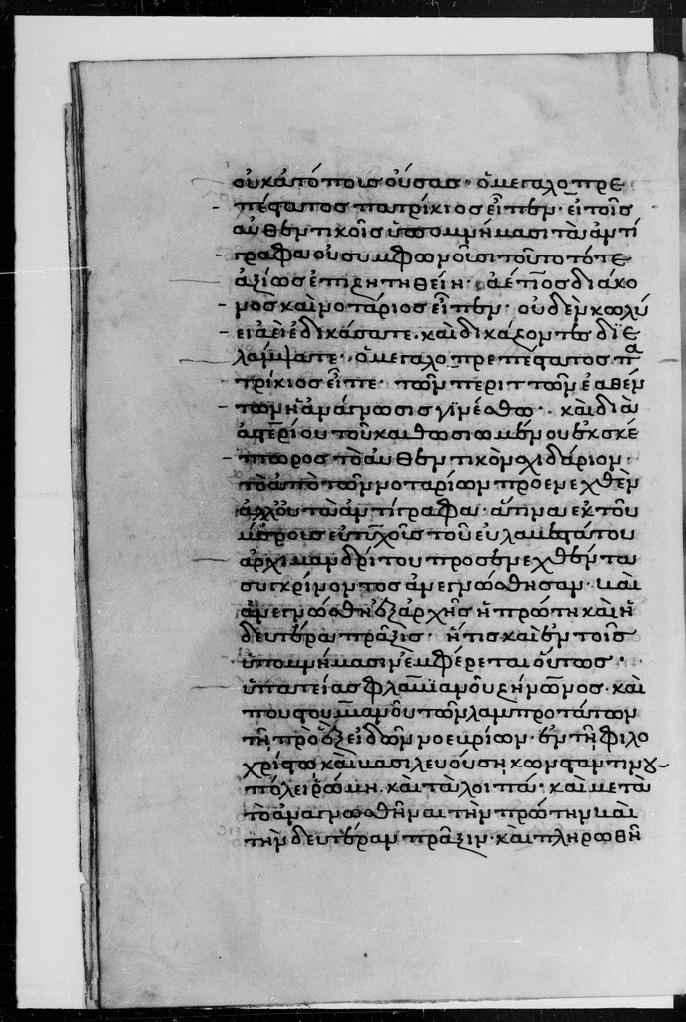 οὐκ ἀπό ποιο οὔσασ· ὁ μεγαλοπρε
πέστατοσ πατρίκιοσ εἶπεν· εἰ τοῖσ
αὐθεντικοῖσ ὑπομνήμασι τὰ ἀντί
γραφα οὐ συμφωνοῦσι τοῦτο τότε
ἀξίωσ ἐπιζητηθείη· ἀέτιοσ διάκο
νοσ καὶ νοτάριοσ εἶπεν· οὐδὲν κωλύ
ει ἀεὶ ἐδικάσατε. καὶ δικάζοντεσ διε
λάμψατε· ὁ μεγαλοπρεπέστατοσ πα
τρίκιοσ εἶπε· τῶν περιττῶν ἐαθέν
των ἡ ἀνάγνωσισ γινέσθω· καὶ διὰ
ἀστερίου τοῦ καθοσιωμένου ἐκσκέ
πτοροσ τὸ αὐθεντικὸν σχιδάριον
τὸ ἀπὸ τῶν νοταρίων προενεχθὲν
ἀλλ' οὐ τὰ ἀντίγραφα· ἅτινα ἐκ τοῦ
μέρουσ εὐτυχοῦσ τοῦ εὐλαβεστάτου
ἀρχιμανδρίτου προσενεχθέντα
συγκρίνοντοσ ἀνεγνώσθησαν· καὶ
ἀνεγνώσθη ἐξ ἀρχῆσ ἡ πρώτη καὶ ἡ
δευτέρα πρᾶξισ· ἥτισ καὶ ἐν τοῖσ
ὑπομνήμασιν ἐμφέρεται οὕτωσ·
ὑπατείασ φλαυϊανοῦ ζήνωνοσ· καὶ
ποστουμιανοῦ τῶν λαμπροτάτων
τῇ πρὸ ἓξ εἰδῶν νοεμρίων· ἐν τῇ φιλο
χρίστω καὶ βασιλευούση κωνσταντίνου
πόλει ῥώμη. καὶ τὰ λοιπά· καὶ μετὰ
τὸ ἀναγνωσθῆναι τὴν πρώτην καὶ
τὴν δευτέραν πρᾶξιν· καὶ πληρωθῆ